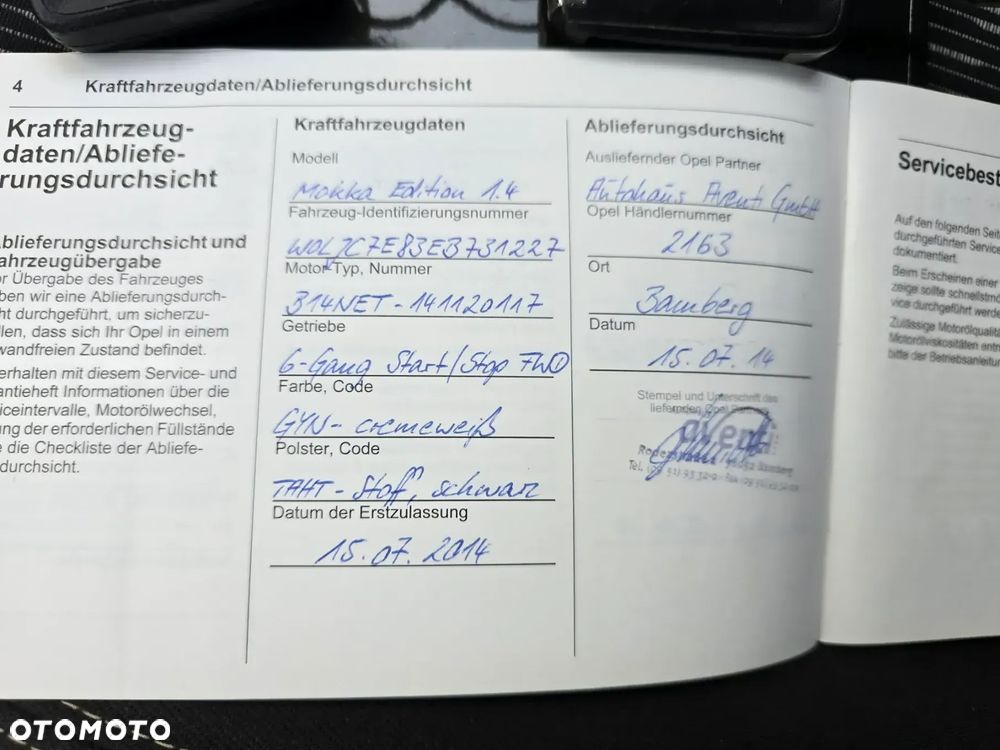 4 Kraftfahrzeugdaten/Ablieferungsdurchsicht
Kraftfahrzeug-
daten/Abliefe-
rungsdurchsicht
blieferungsdurchsicht und
ahrzeugübergabe
or Übergabe des Fahrzeuges
ben wir eine Ablieferungsdurch-
ht durchgeführt, um sicherzu-
llen, dass sich Ihr Opel in einem
wandfreien Zustand befindet.
erhalten mit diesem Service- und
antieheft Informationen über die
iceintervalle, Motorölwechsel,
ung der erforderlichen Füllstände
e die Checkliste der Abliefe-
durchsicht.
Kraftfahrzeugdaten
Modell
Mokka Edition 1.4
Fahrzeug-Identifizierungsnummer
W0LJC7E83EB731227
Motor-Typ, Nummer
B14NET - 141120117
Getriebe
6-Gang Start/Stop FWD
Farbe, Code
GYN - cremeweiß
Polster, Code
TAHT - Stoff, schwarz
Datum der Erstzulassung
15.07.2014
Ablieferungsdurchsicht
Ausliefernder Opel Partner
Autohaus Aventi GmbH
Opel Händlernummer
2163
Ort
Bamberg
Datum
15.07.14
Stempel und Unterschrift des
liefernden Opel
aventi
Bamberg
Tel.
Servicebest
Auf den folgenden Seit
durchgeführten Servic
dokumentiert.
Beim Erscheinen einer
zeige sollte schnellstm
vice durchgeführt werde
Zulässige Motorölqualit
Motorölviskositäten entn
bitte der Betriebsanleitu
OTOMOTO